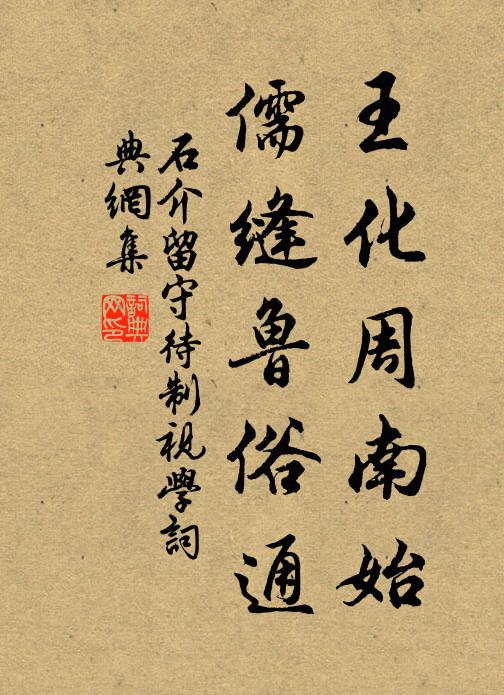 王化周南始
儒縫魯俗通
石介留守待制視學詞
典網集
詞典網印